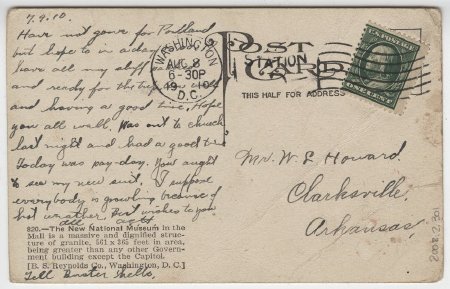 7.9.10.
Have not gone for Portland
but hope to in a day
Have all my stuff
and ready for the trip
and having a good time. Hope
you all well. Was out to church
last night and had a good time
Today was pay-day. You aught
to see my new suit. I suppose
everybody is growling because of
hot weather. Best wishes to you
all
820.—The New National Museum in the
Mall is a massive and dignified struc-
ture of granite, 561 x 365 feet in area,
being greater than any other Govern-
ment building except the Capitol.
[B. S. Reynolds Co., Washington, D. C.]
Tell Buster hello.
POST CARD
THIS HALF FOR ADDRESS
WASHINGTON
AUG 8
6-30P
1910
D.C.
STATION
U.S. POSTAGE
ONE CENT
Mr. W. L. Howard.
Clarksville,
Arkansas.